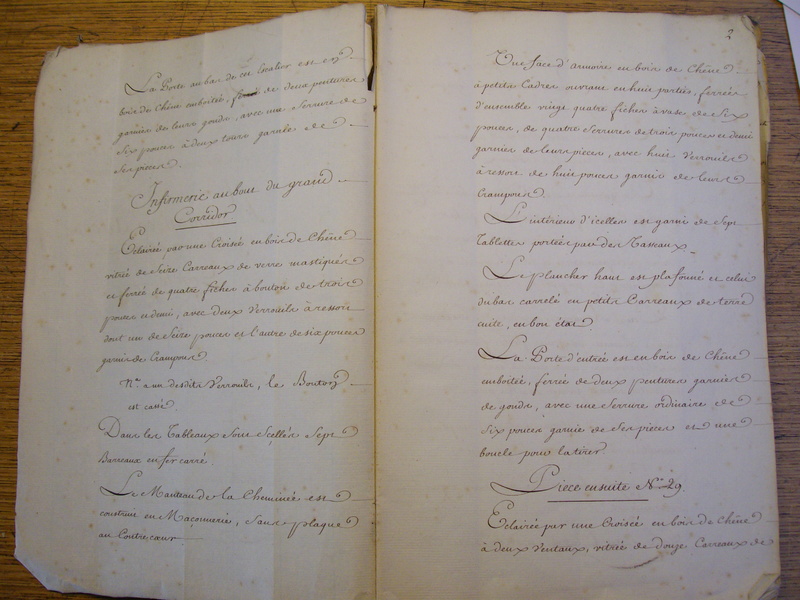 La Porte au bas de cet Escalier est en
bois de Chêne emboitée, ferrée de deux pentures
garnies de leurs gonds, avec une Serrure de
Six pouces à deux tours garnie de
Ses pieces.
Infirmerie au bout du grand
Corridor
Eclairée par une Croisée en bois de Chêne
vitrée de Seize Carreaux de verre mastiqués
et ferrée de quatre fiches à bouton de trois
pouces et demi, avec deux Verrouils à ressort
dont un de Seize pouces et l'autre de six pouces
garnis de Crampons
Na. a un desdits Verrouils, le Bouton
est cassé.
Dans les Tableaux sont Scellés Sept
Barreaux en fer carré.
Le Manteau de la Cheminée est
construit en Maçonnerie, Sans plaque
au Contrecœur
2
Une face d'armoire en bois de Chêne
à petits Cadres ouvrant en huit parties, ferrées
d'ensemble vingt quatre fiches à vase de Six
pouces, de quatre Serrures de trois pouces et demi
garnies de leurs pieces, avec huit Verrouils
à ressort de huit pouces garnis de leurs
Crampons.
L'intérieur d'icelles est garni de Sept
Tablettes portées par des Tasseaux.
Le plancher haut est plafonné et celui
du bas carrelé en petits Carreaux de terre
cuite, en bon état.
La Porte d'entrée est en bois de Chêne
emboitée, ferrée de deux pentures garnies
de gonds, avec une Serrure ordinaire de
Six pouces garnie de Ses pieces et une
boucle pour la tirer
Piece ensuite No. 29
Eclairée par une Croisée en bois de Chêne
à deux Ventaux, vitrée de douze Carreaux de